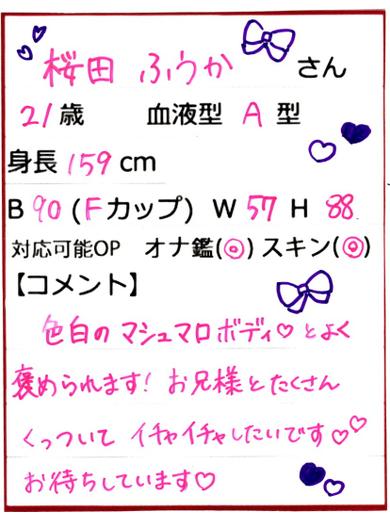 桜田 ふうか さん
21歳 血液型 A 型
身長 159 cm
B 90 (Fカップ) W 57 H 88
対応可能OP オナ鑑(◎) スキン(◎)
【コメント】
色白の マシュマロ ボディ♡ とよく
褒められます! お兄様とたくさん
くっついて イチャイチャしたいです♡♡
お待ちしています♡